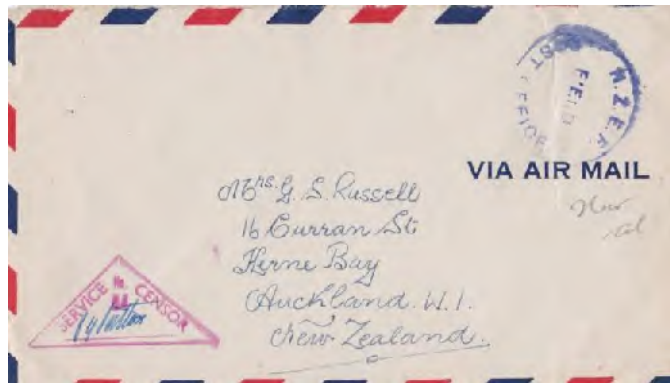 N.Z.E.F.
FIELD
POST OFFICE
VIA AIR MAIL
Mrs. G. S. Russell
16 Curran St.
Herne Bay
Auckland. W.1.
New Zealand.
SERVICE No. CENSOR